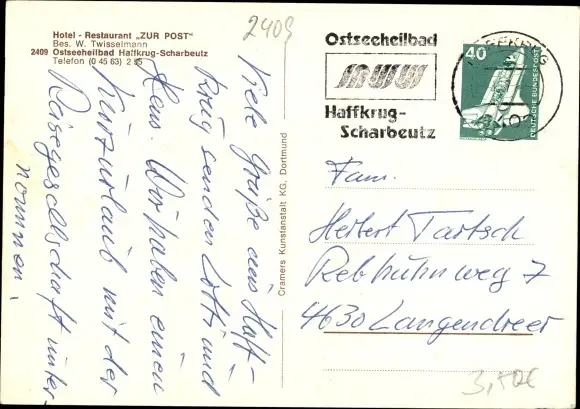 Hotel - Restaurant „ZUR POST“
Bes. W. Twisselmann
2409 Ostseeheilbad Haffkrug-Scharbeutz
Telefon (0 45 63) 2
2409
Viele Grüße aus Haff-
krug senden Lotti und
Hans. Wir haben einen
Kurzurlaub mit der
Reisegesellschaft unter-
nommen.
Cramers Kunstanstalt KG, Dortmund
Ostseeheilbad
Haffkrug-
Scharbeutz
40
DEUTSCHE BUNDESPOST
Fam.
Herbert Tartsch
Rebhuhnweg 7
4630 Langendreer
3,50€